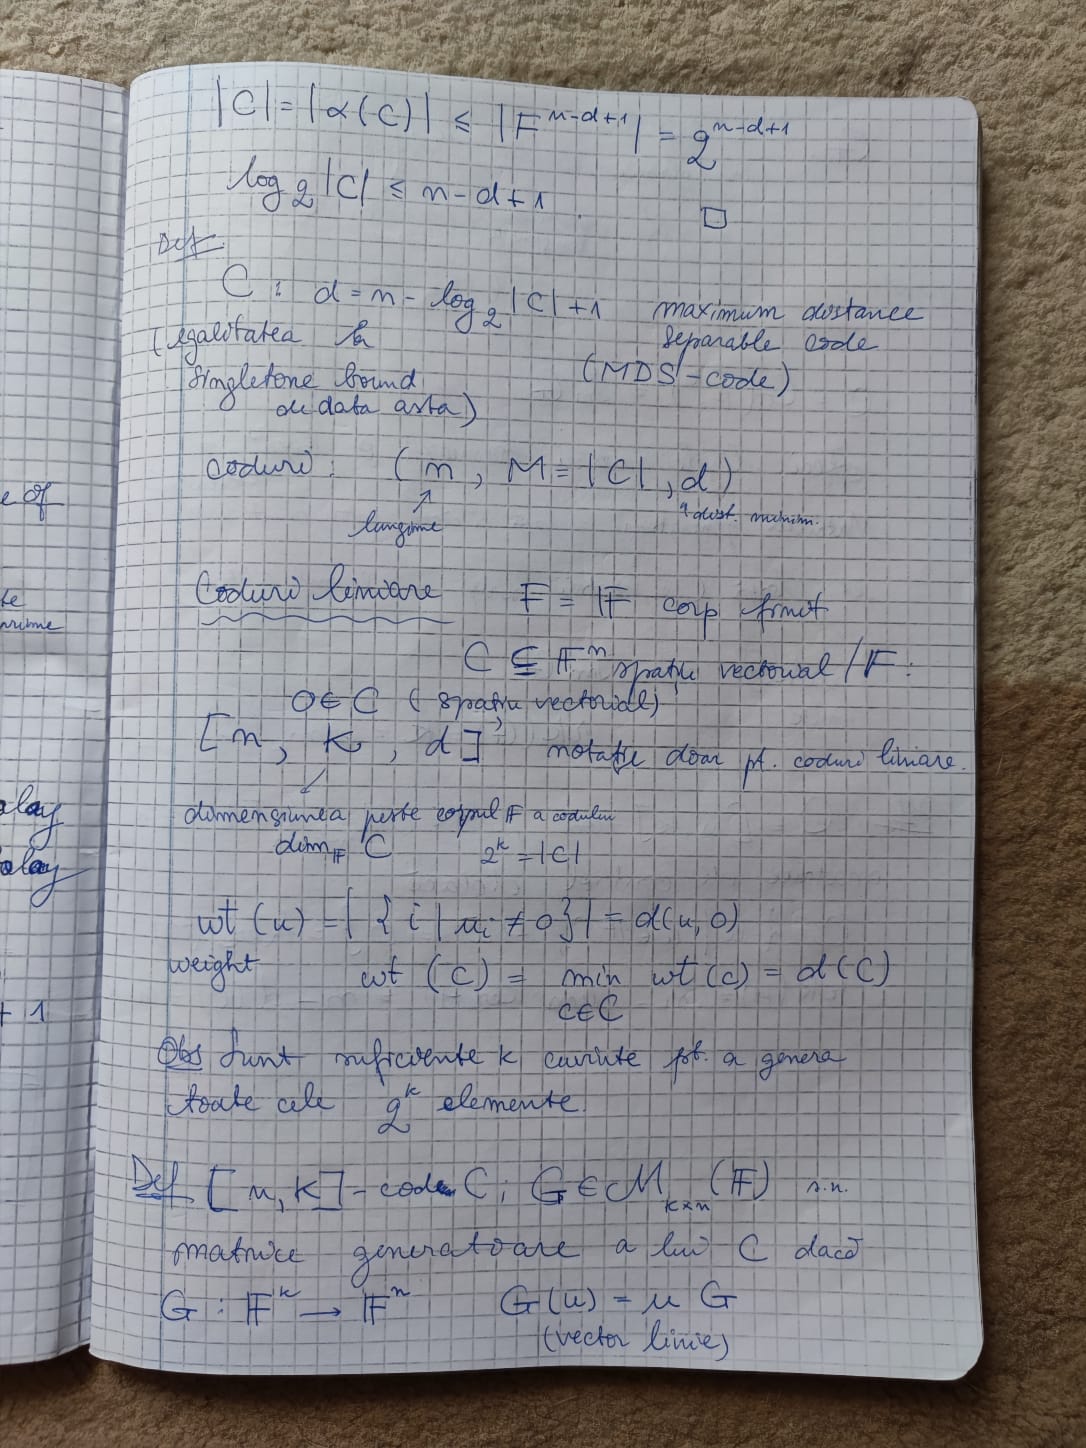 e of
te
prime
olay
olay
+ 1
|C| = |α(C)| ≤ |F^{n-d+1}| = 2^{n-d+1}
log_2 |C| ≤ n-d+1. □
Def
C: d = n - log_2 |C| + 1 maximum distance
(egalitatea la separable code
singletone bound (MDS-code)
de data asta)
coduri: (n, M = |C|, d)
lungime dist. minim.
Coduri liniare F = 𝔽 corp finit
C ⊆ 𝔽^n spațiu vectorial / 𝔽:
0 ∈ C (spațiu vectorial)
[n, k, d] notație doar pt. coduri liniare.
dimensiunea peste corpul 𝔽 a codului
dim_𝔽 C 2^k = |C|
wt(u) = |{i | u_i ≠ 0}| = d(u, 0)
weight wt(C) = min wt(c) = d(C)
c∈C
Obs Sunt suficiente k cuvinte pt. a genera
toate cele 2^k elemente.
Def [n, k]-code C; G ∈ M_{k×n}(𝔽) s.n.
matrice generatoare a lui C dacă
G: 𝔽^k → 𝔽^n G(u) = u G
(vector linie)